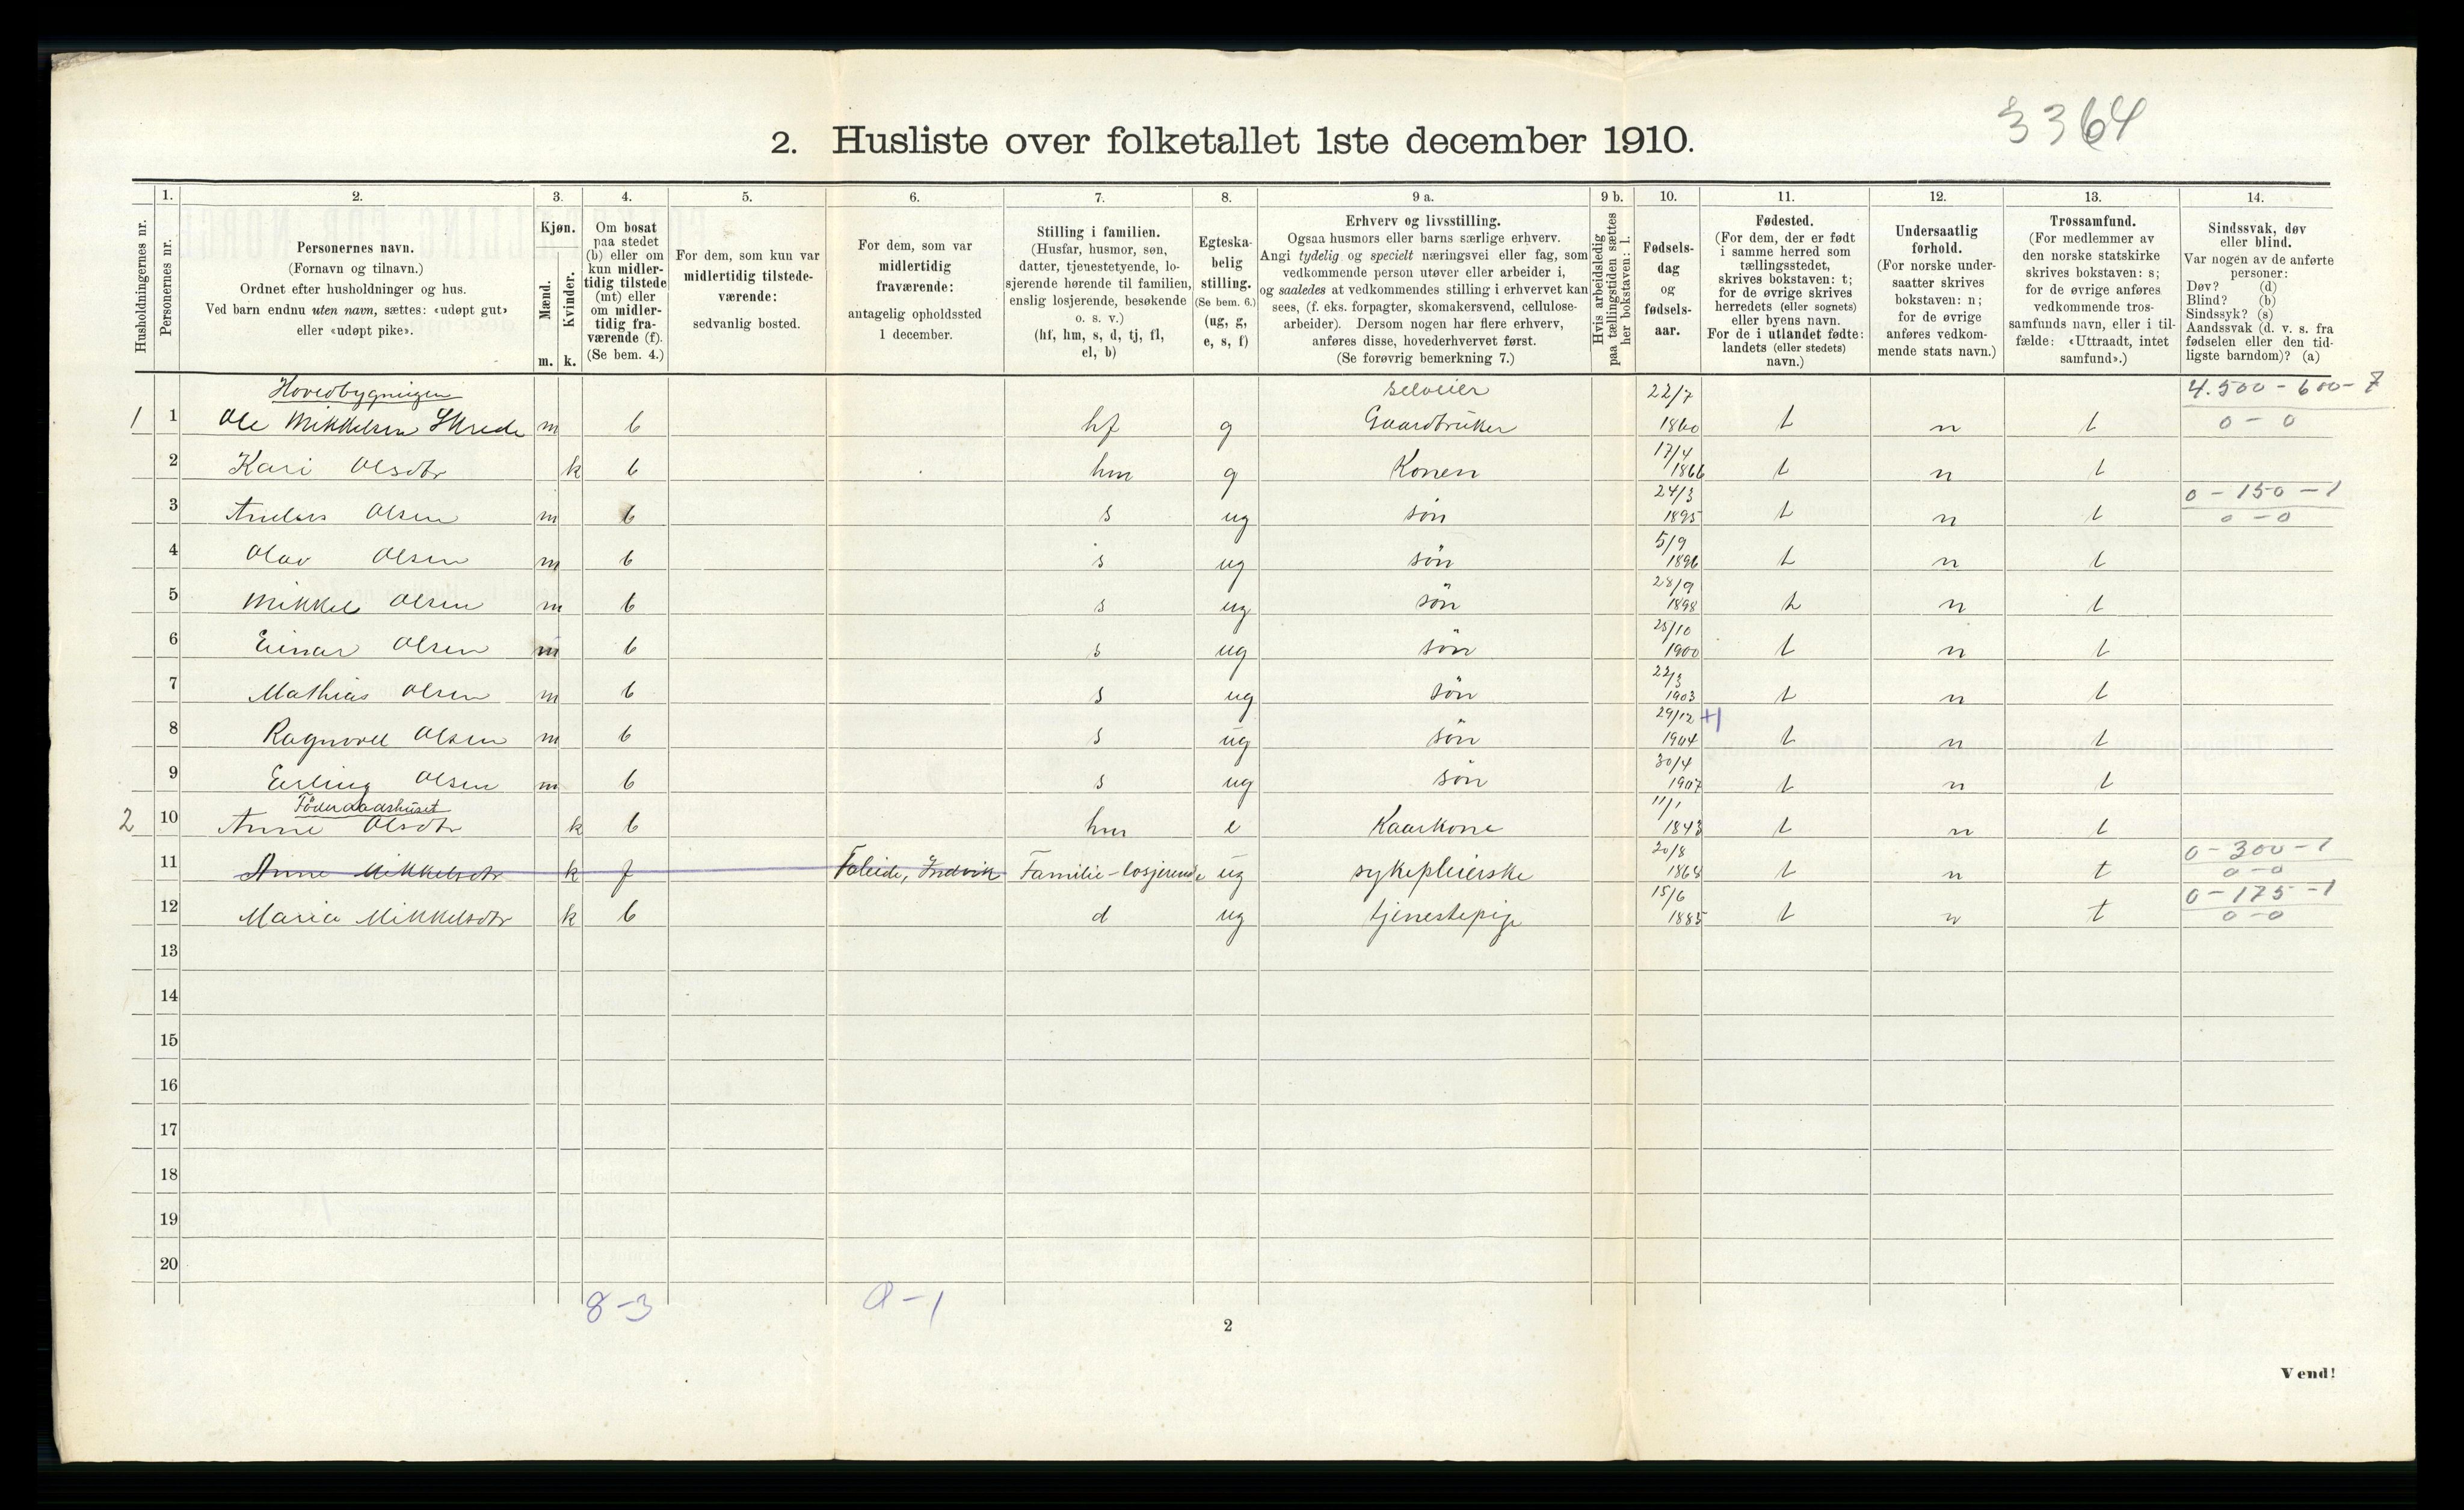 3364
2. Husliste over folketallet 1ste december 1910.
Husholdningernes nr.
1.
Personernes nr.
2.
Personernes navn.
(Fornavn og tilnavn.)
Ordnet efter husholdninger og hus.
Ved barn endnu uten navn, sættes: «udøpt gut»
eller «udøpt pike».
3.
Kjøn.
Mænd.
Kvinder.
m. k.
4.
Om bosat
paa stedet
(b) eller om
kun midler-
tidig tilstede
(mt) eller
om midler-
tidig fra-
værende (f).
(Se bem. 4.)
5.
For dem, som kun var
midlertidig tilstede-
værende:
sedvanlig bosted.
6.
For dem, som var
midlertidig
fraværende:
antagelig opholdssted
1 december.
7.
Stilling i familien.
(Husfar, husmor, søn,
datter, tjenestetyende, lo-
sjerende hørende til familien,
enslig losjerende, besøkende
o. s. v.)
(hf, hm, s, d, tj, fl,
el, b)
8.
Egteska-
belig
stilling.
(Se bem. 6.)
(ug, g,
e, s, f)
9 a.
Erhverv og livsstilling.
Ogsaa husmors eller barns særlige erhverv.
Angi tydelig og specielt næringsvei eller fag, som
vedkommende person utøver eller arbeider i,
og saaledes at vedkommendes stilling i erhvervet kan
sees, (f. eks. forpagter, skomakersvend, cellulose-
arbeider). Dersom nogen har flere erhverv,
anføres disse, hovederhvervet først.
(Se forøvrig bemerkning 7.)
9 b.
Hvis arbeidsledig
paa tællingstiden sættes
her bokstaven: l.
10.
Fødsels-
dag
og
fødsels-
aar.
11.
Fødested.
(For dem, der er født
i samme herred som
tællingsstedet,
skrives bokstaven: t;
for de øvrige skrives
herredets (eller sognets)
eller byens navn.
For de i utlandet fødte:
landets (eller stedets)
navn.)
12.
Undersaatlig
forhold.
(For norske under-
saatter skrives
bokstaven: n;
for de øvrige
anføres vedkom-
mende stats navn.)
13.
Trossamfund.
(For medlemmer av
den norske statskirke
skrives bokstaven: s;
for de øvrige anføres
vedkommende tros-
samfunds navn, eller i til-
fælde: «Uttraadt, intet
samfund».)
14.
Sindssvak, døv
eller blind.
Var nogen av de anførte
personer:
Døv? (d)
Blind? (b)
Sindssyk? (s)
Aandssvak (d. v. s. fra
fødselen eller den tid-
ligste barndom)? (a)
Hovedbygningen selveier 22/7 4.500 - 600 - 7
1 1 Ole Mikkelsen Skrede m b hf g Gaardbruker 1860 t n t 0 - 0
2 Kari Olsdtr k b hm g Konen 17/4 1866 t n t
3 Anders Olsen m b s ug søn 24/3 1895 t n t 0 - 150 - 1 0 - 0
4 Olav Olsen m b s ug søn 5/9 1896 t n t
5 Mikkel Olsen m b s ug søn 28/9 1898 t n t
6 Einar Olsen m b s ug søn 25/10 1900 t n t
7 Mathias Olsen m b s ug søn 22/3 1903 t n t
8 Ragnvald Olsen m b s ug søn 29/12 1904 t n t
9 Erling Olsen m b s ug søn 30/4 1907 t n t
Föderaadshuset
2 10 Anne Olsdtr k b hm e Kaarkone 11/1 1843 t n t
11 Anne Mikkelsdtr k f Faleide, Indvik Familie-losjerende ug sykepleierske 20/8 1864 t n t 0 - 300 - 1 0 - 0
12 Maria Mikkelsdtr k b d ug tjenestepige 15/6 1885 t n t 0 - 175 - 1 0 - 0
13
14
15
16
17
18
19
20
8-3
0-1
2
Vend!